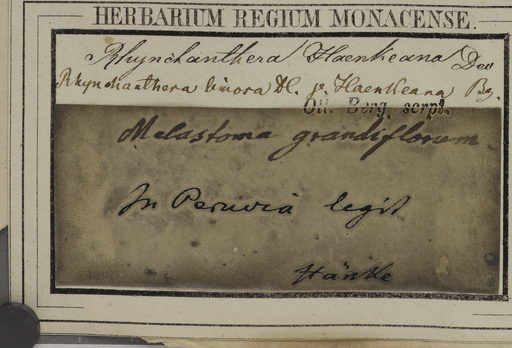 HERBARIUM REGIUM MONACENSE.
Rhynchanthera Haenkeana Dec
Rhynchanthera limosa Dl. β. Haenkeana Bg.
Ott. Berg. scrpt.
Melastoma grandiflorum.
In Peruvia legit
Hänke